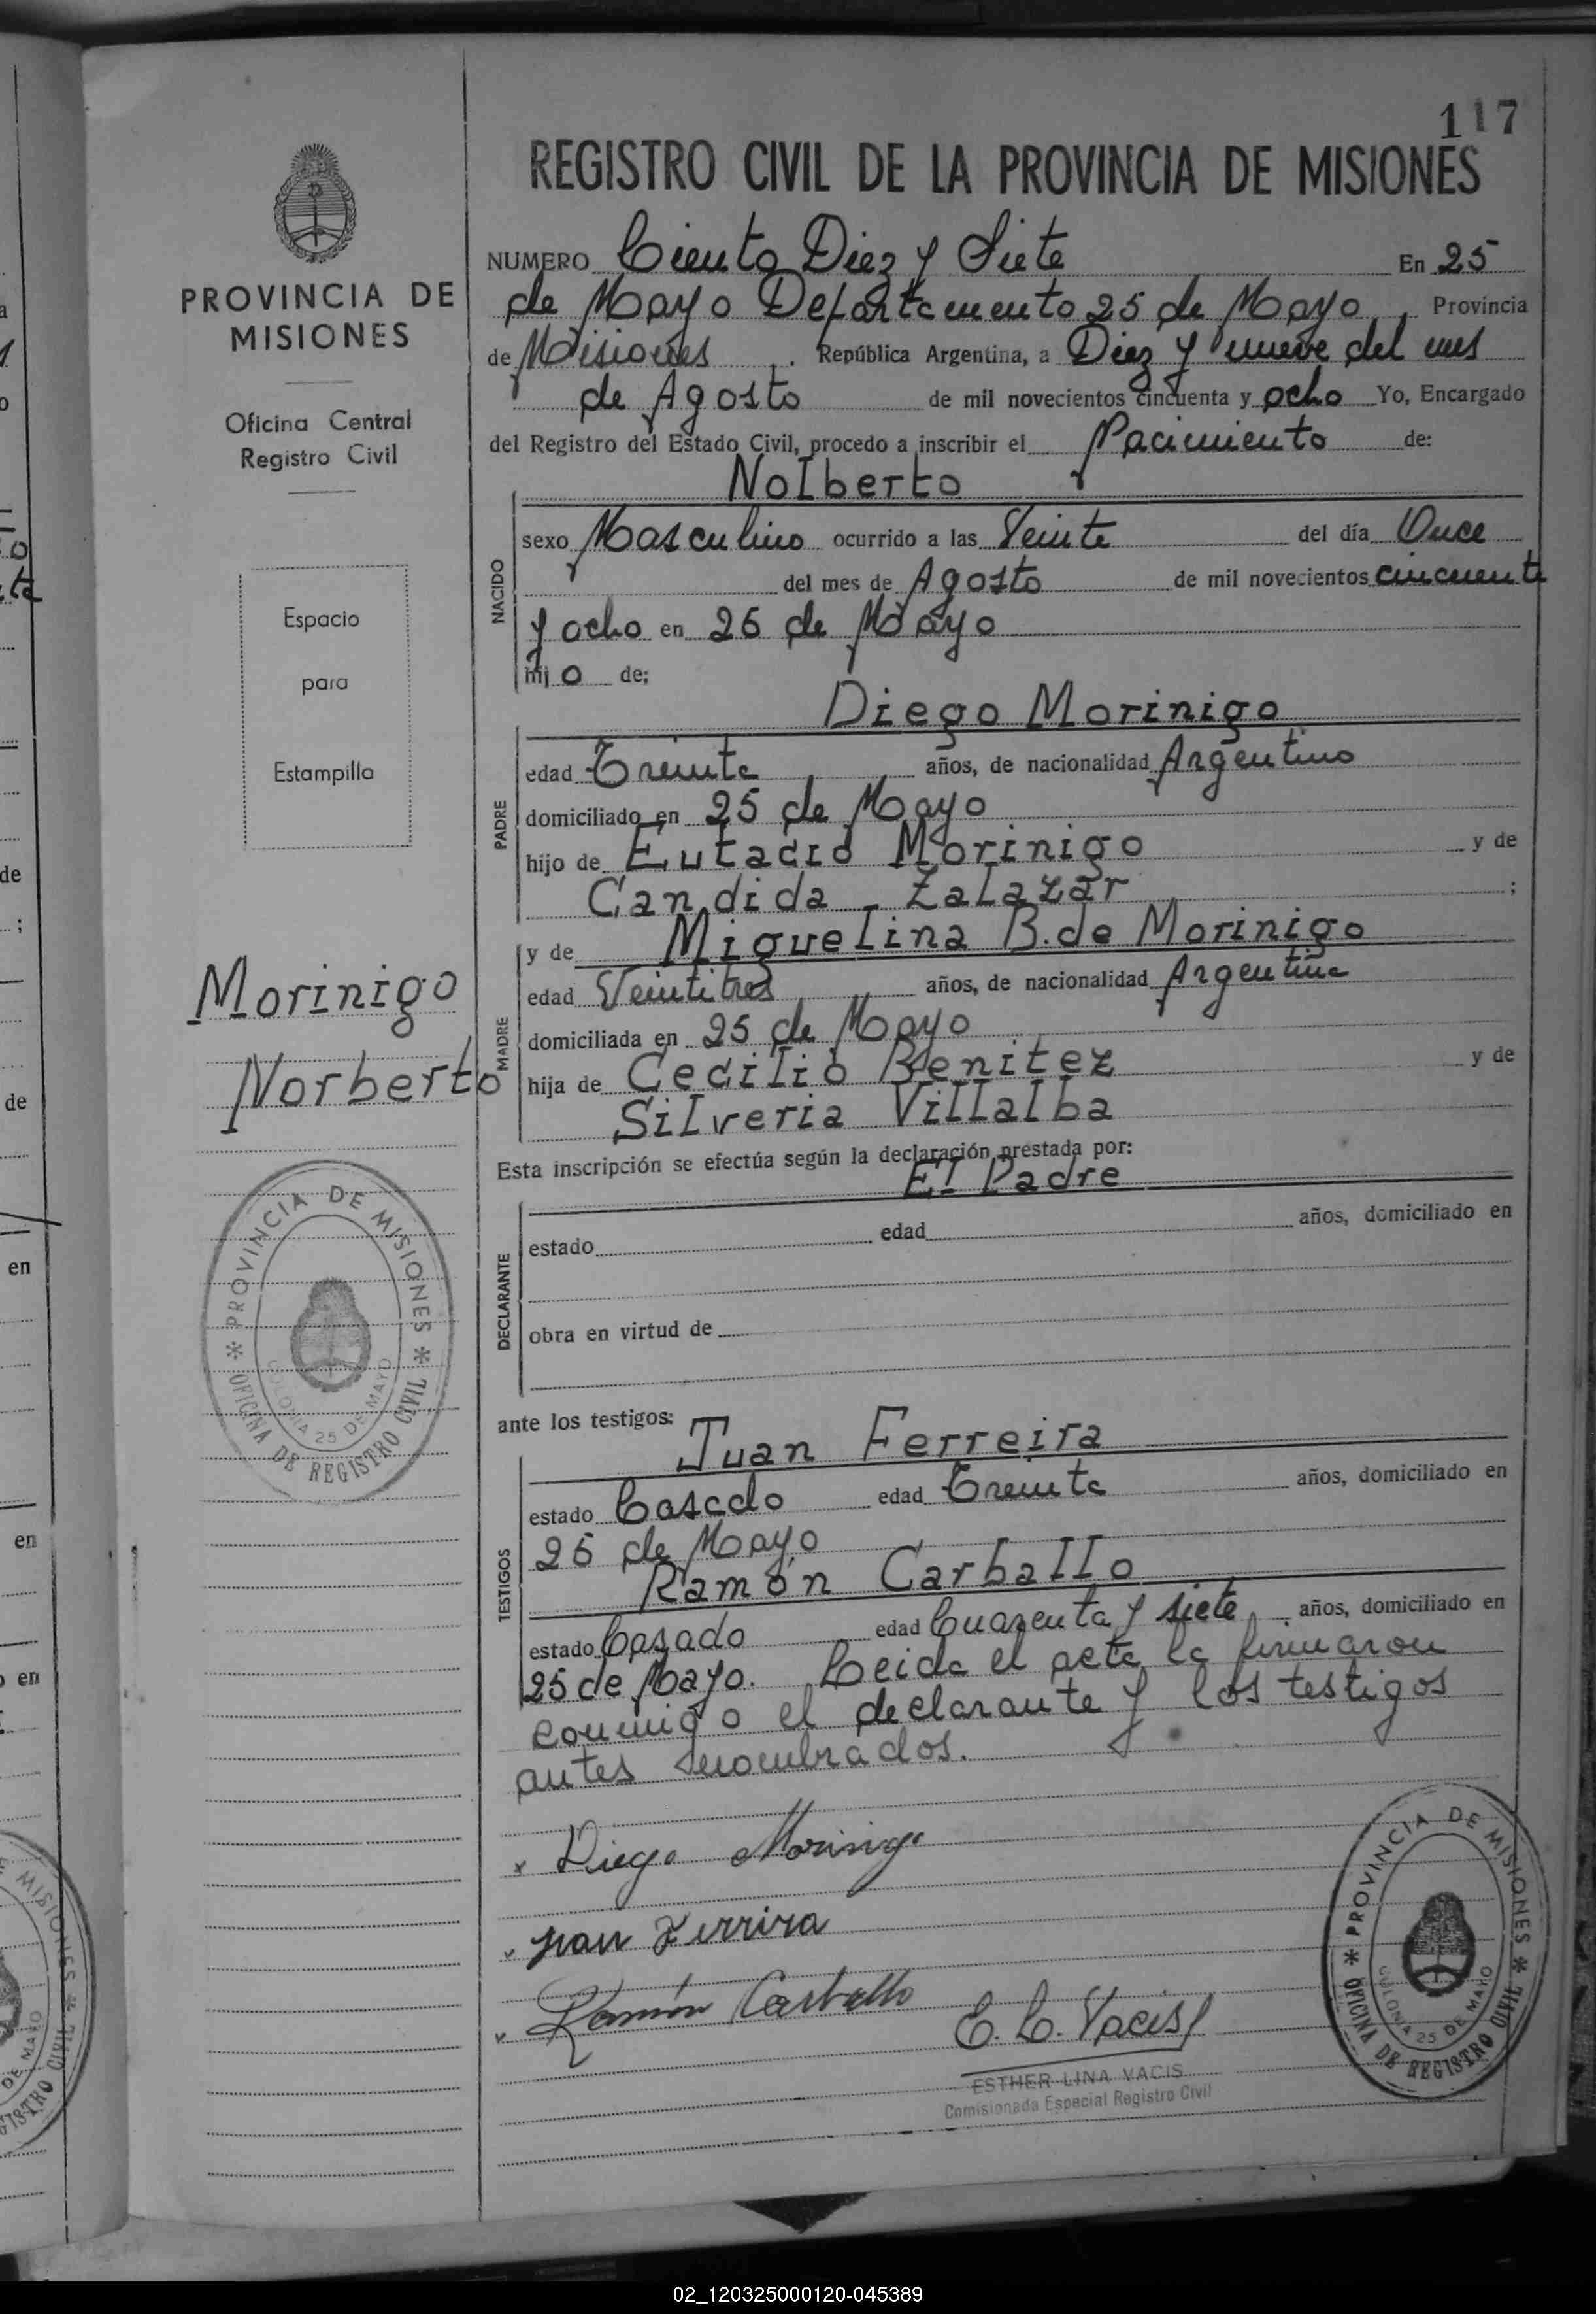 117
REGISTRO CIVIL DE LA PROVINCIA DE MISIONES
PROVINCIA DE
MISIONES
Oficina Central
Registro Civil
Espacio
para
Estampilla
Morinigo
Norberto
PROVINCIA DE MISIONES
COLONIA 25 DE MAYO
OFICINA DE REGISTRO CIVIL
NUMERO Ciento Diez y Siete En 25
de Mayo Departamento 25 de Mayo Provincia
de Misiones República Argentina, a Diez y nueve del mes
de Agosto de mil novecientos cincuenta y ocho Yo, Encargado
del Registro del Estado Civil, procedo a inscribir el Nacimiento de:
NACIDO
Nolberto
sexo Masculino ocurrido a las Veinte del día Once
del mes de Agosto de mil novecientos cincuenta
y ocho en 25 de Mayo
hijo de;
PADRE
Diego Morinigo
edad Treinta años, de nacionalidad Argentino
domiciliado en 25 de Mayo
hijo de Eutacio Morinigo y de
Candida Zalazar ;
MADRE
y de Miguelina B. de Morinigo
edad Veintitres años, de nacionalidad Argentina
domiciliada en 25 de Mayo
hija de Cecilio Benitez y de
Silveria Villalba
Esta inscripción se efectúa según la declaración prestada por:
DECLARANTE
El Padre
estado edad años, domiciliado en
obra en virtud de
ante los testigos:
TESTIGOS
Juan Ferreira
estado Casado edad Treinta años, domiciliado en
25 de Mayo
Ramón Carballo
estado Casado edad Cuarenta y siete años, domiciliado en
25 de Mayo. Leida el acta la firmaron
conmigo el declarante y los testigos
antes nombrados.
x Diego Morinigo
x Juan Ferrira
x Ramón Carballo
E. L. Vacis
ESTHER LINA VACIS
Comisionada Especial Registro Civil
PROVINCIA DE MISIONES
COLONIA 25 DE MAYO
OFICINA DE REGISTRO CIVIL
02_120325000120-045389